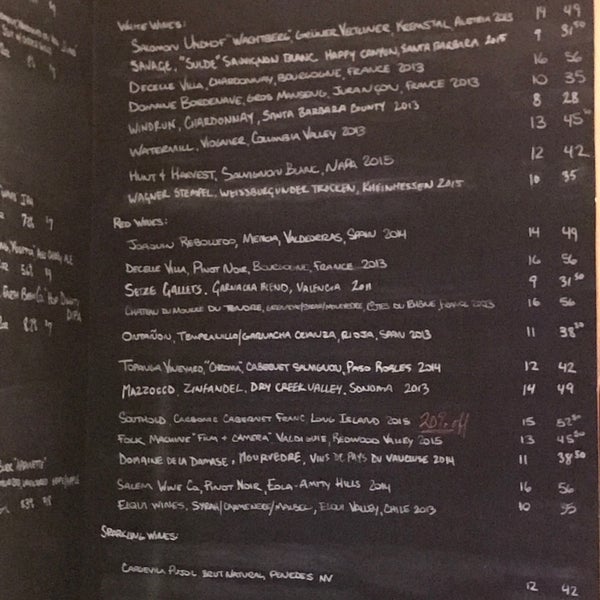 White Wines:
Salomon Undhof "Wachtberg", Grüner Veltliner, Kremstal, Austria 2013 14 49
Savage, "Sulde" Sauvignon Blanc Happy Canyon, Santa Barbara 2015 9 31.50
Decelle Villa, Chardonnay, Bourgogne, France 2013 16 56
Domaine Bordenave, Gros Manseng, Jurançon, France 2013 10 35
Windrun, Chardonnay, Santa Barbara County 2013 8 28
Watermill, Viognier, Columbia Valley 2013 13 45.50
Hunt & Harvest, Sauvignon Blanc, Napa 2015 12 42
Wagner Stempel, Weissburgunder Trocken, Rheinhessen 2015 10 35
Red Wines:
Joaquin Rebolledo, Mencia, Valdeorras, Spain 2014 14 49
Decelle Villa, Pinot Noir, Bourgogne, France 2013 16 56
Seize Gallets, Garnacha Blend, Valencia 2011 9 31.50
Chateau du Mourre du Tendre, Côtes du Rhône, France 2013 16 56
Ontañon, Tempranillo/Garnacha Crianza, Rioja, Spain 2013 11 38.50
Topanga Vineyard, "Chroma", Cabernet Sauvignon, Paso Robles 2014 12 42
Mazzocco, Zinfandel, Dry Creek Valley, Sonoma 2013 14 49
Southold, Carbonic Cabernet Franc, Long Island 2015 20% off 15 52.50
Folk Machine "Film & Camera" Valdiguie, Redwood Valley 2015 13 45.50
Domaine de la Damase, Mourvedre, Vins de Pays du Vaucluse 2014 11 38.50
Salem Wine Co, Pinot Noir, Eola-Amity Hills 2014 16 56
Elqui Wines, Syrah/Carmenere/Malbec, Elqui Valley, Chile 2013 10 35
Sparkling Wines:
Cardevila Pujol Brut Natural, Penedes NV 12 42